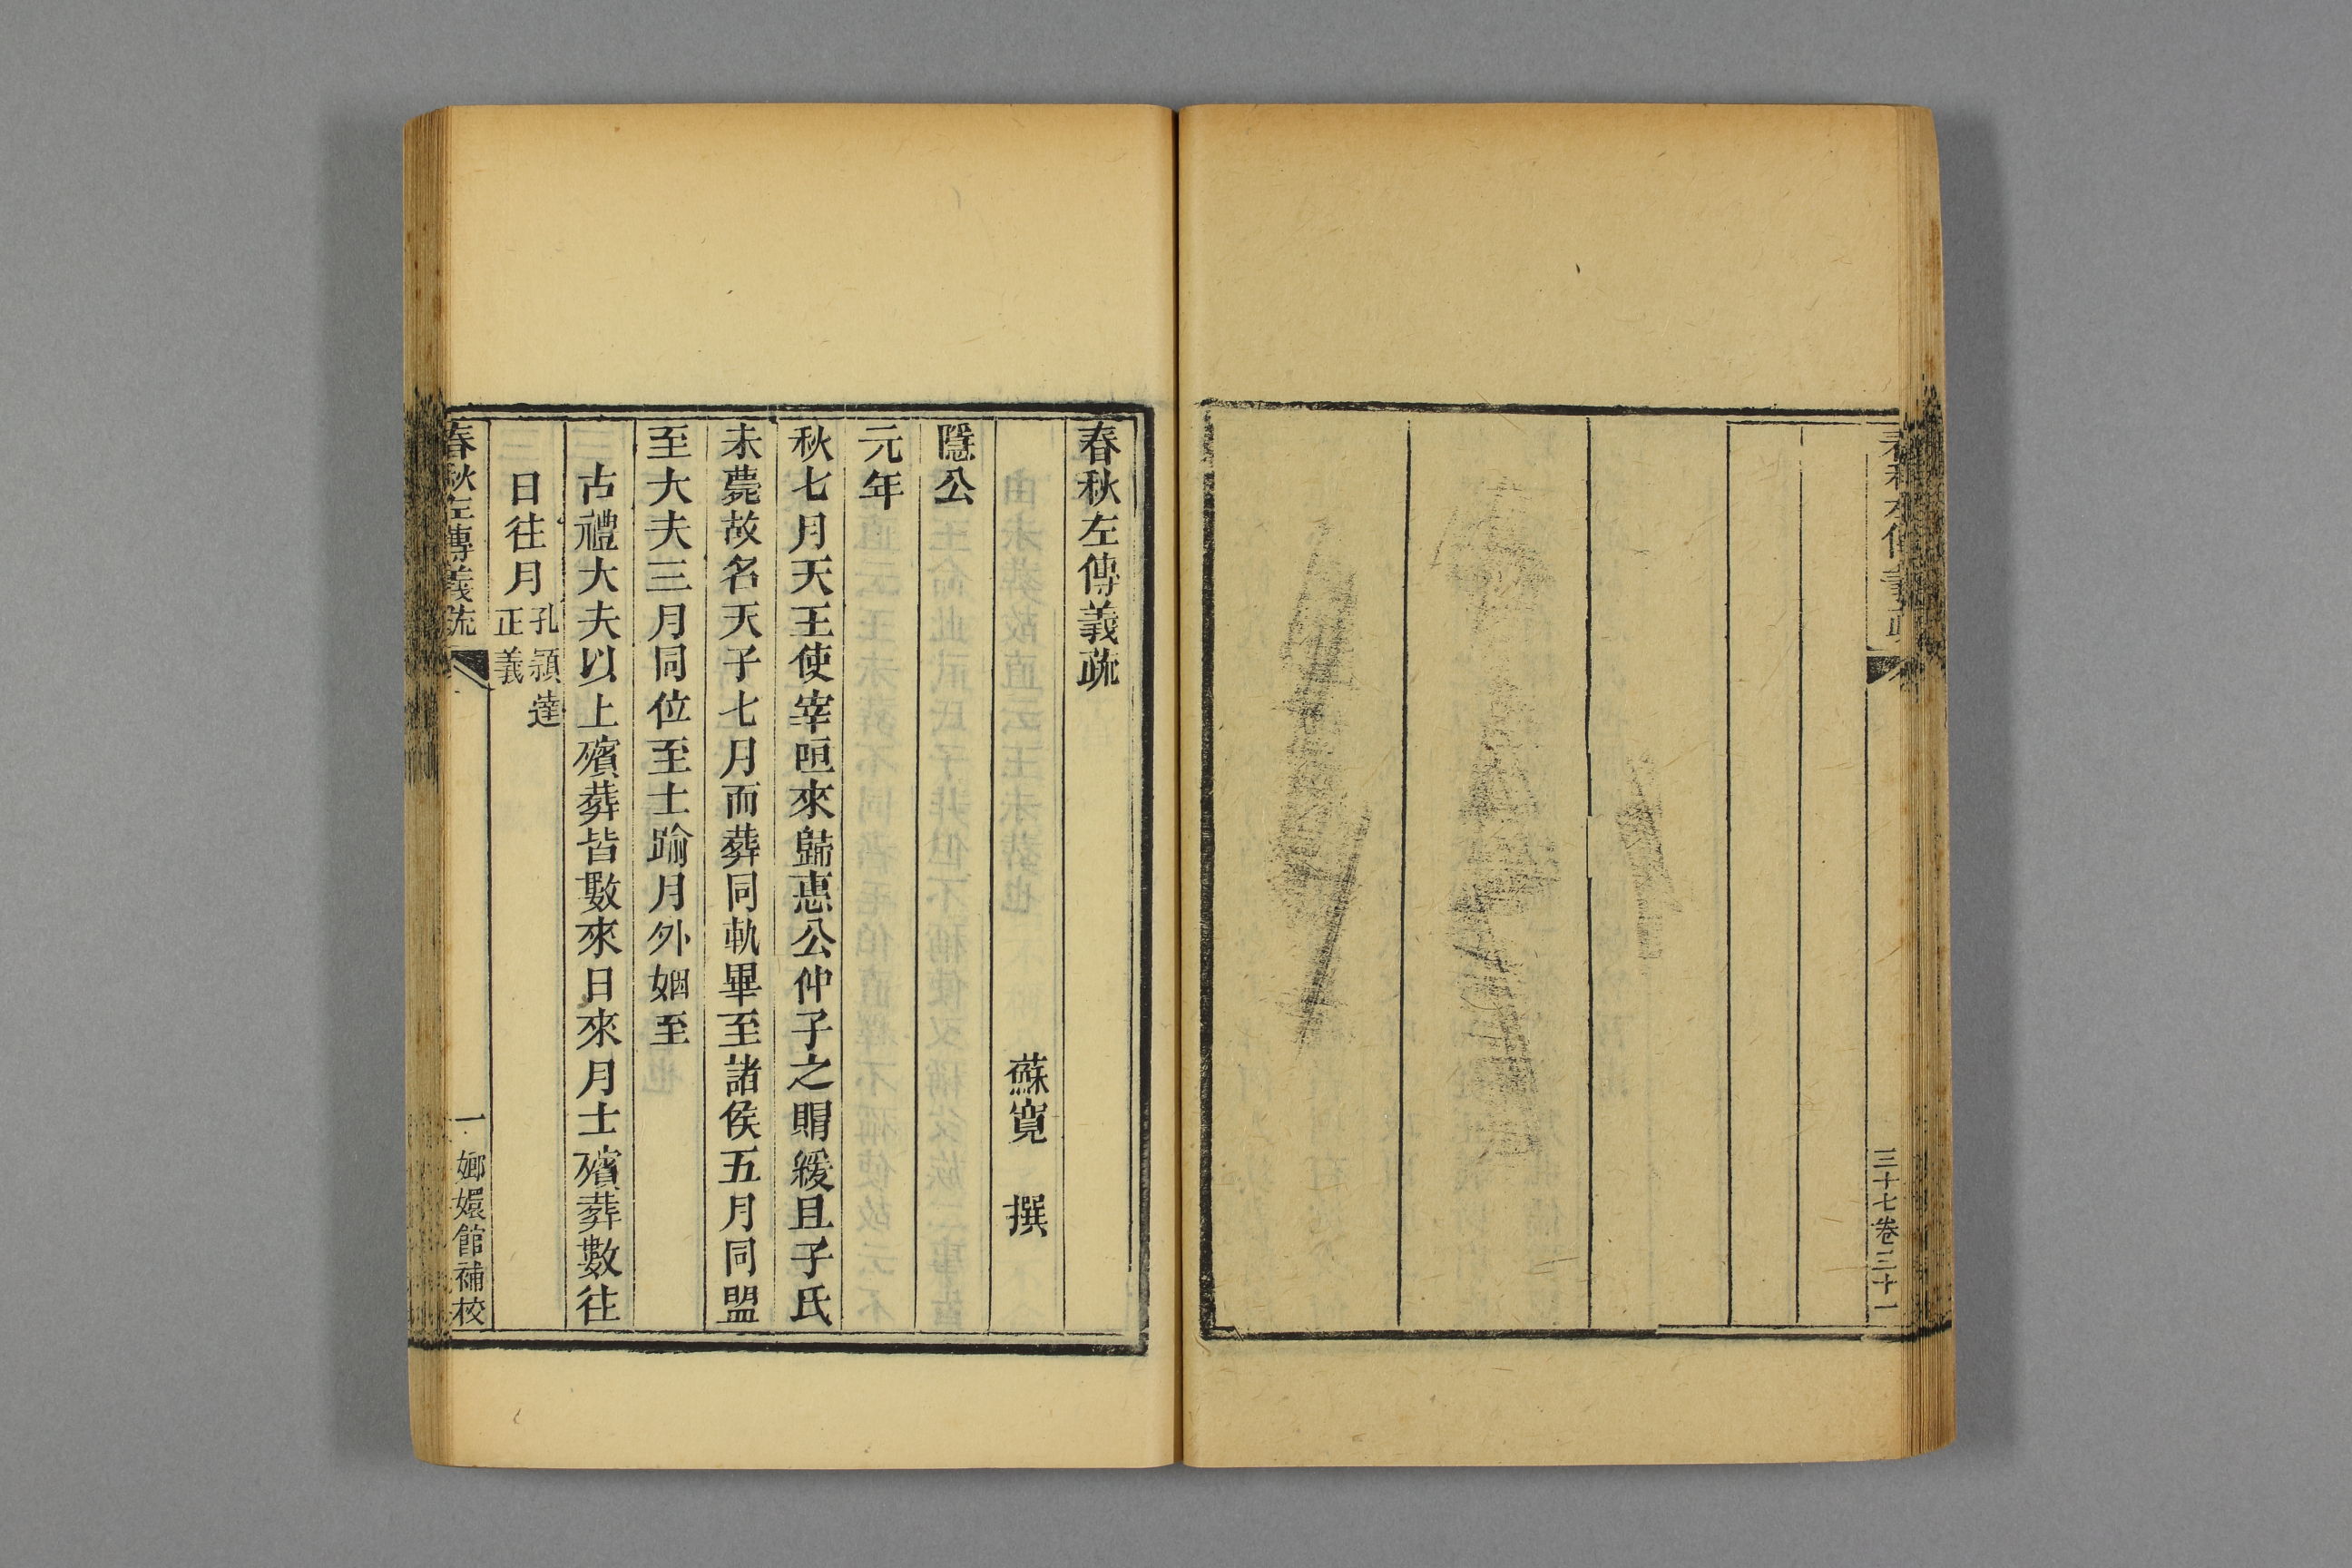 三十七卷三十一
春秋左傳義疏
蘇寬 撰
隱公
元年
秋七月天王使宰咺來歸惠公仲子之賵緩且子氏
未薨故名天子七月而葬同軌畢至諸侯五月同盟
至大夫三月同位至士踰月外姻至
古禮大夫以上殯葬皆數來日來月士殯葬數往
日往月孔穎達
正義
春秋左傳義疏
一
嫏嬛館補校